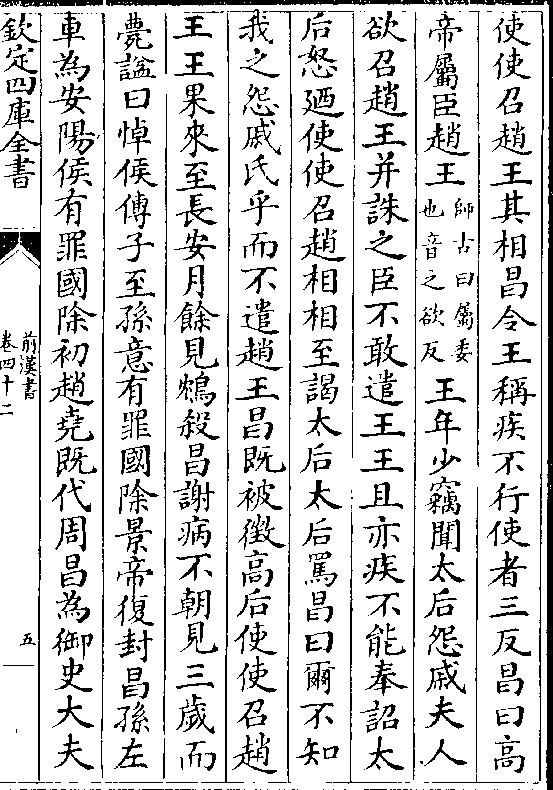 使使召趙王其相昌令王稱疾不行使者三反昌曰高
帝屬臣趙王師古曰屬委也音之欲反王年少竊聞太后怨戚夫人
欲召趙王并誅之臣不敢遣王王且亦疾不能奉詔太
后怒廼使使召趙相相至謁太后太后罵昌曰爾不知
我之怨戚氏乎而不遣趙王昌既被徵高后使使召趙
王王果來至長安月餘見鴆殺昌謝病不朝見三歲而
薨諡曰悼侯傳子至孫意有罪國除景帝復封昌孫左
車為安陽侯有罪國除初趙堯既代周昌為御史大夫
欽定四庫全書
前漢書
卷四十二
五